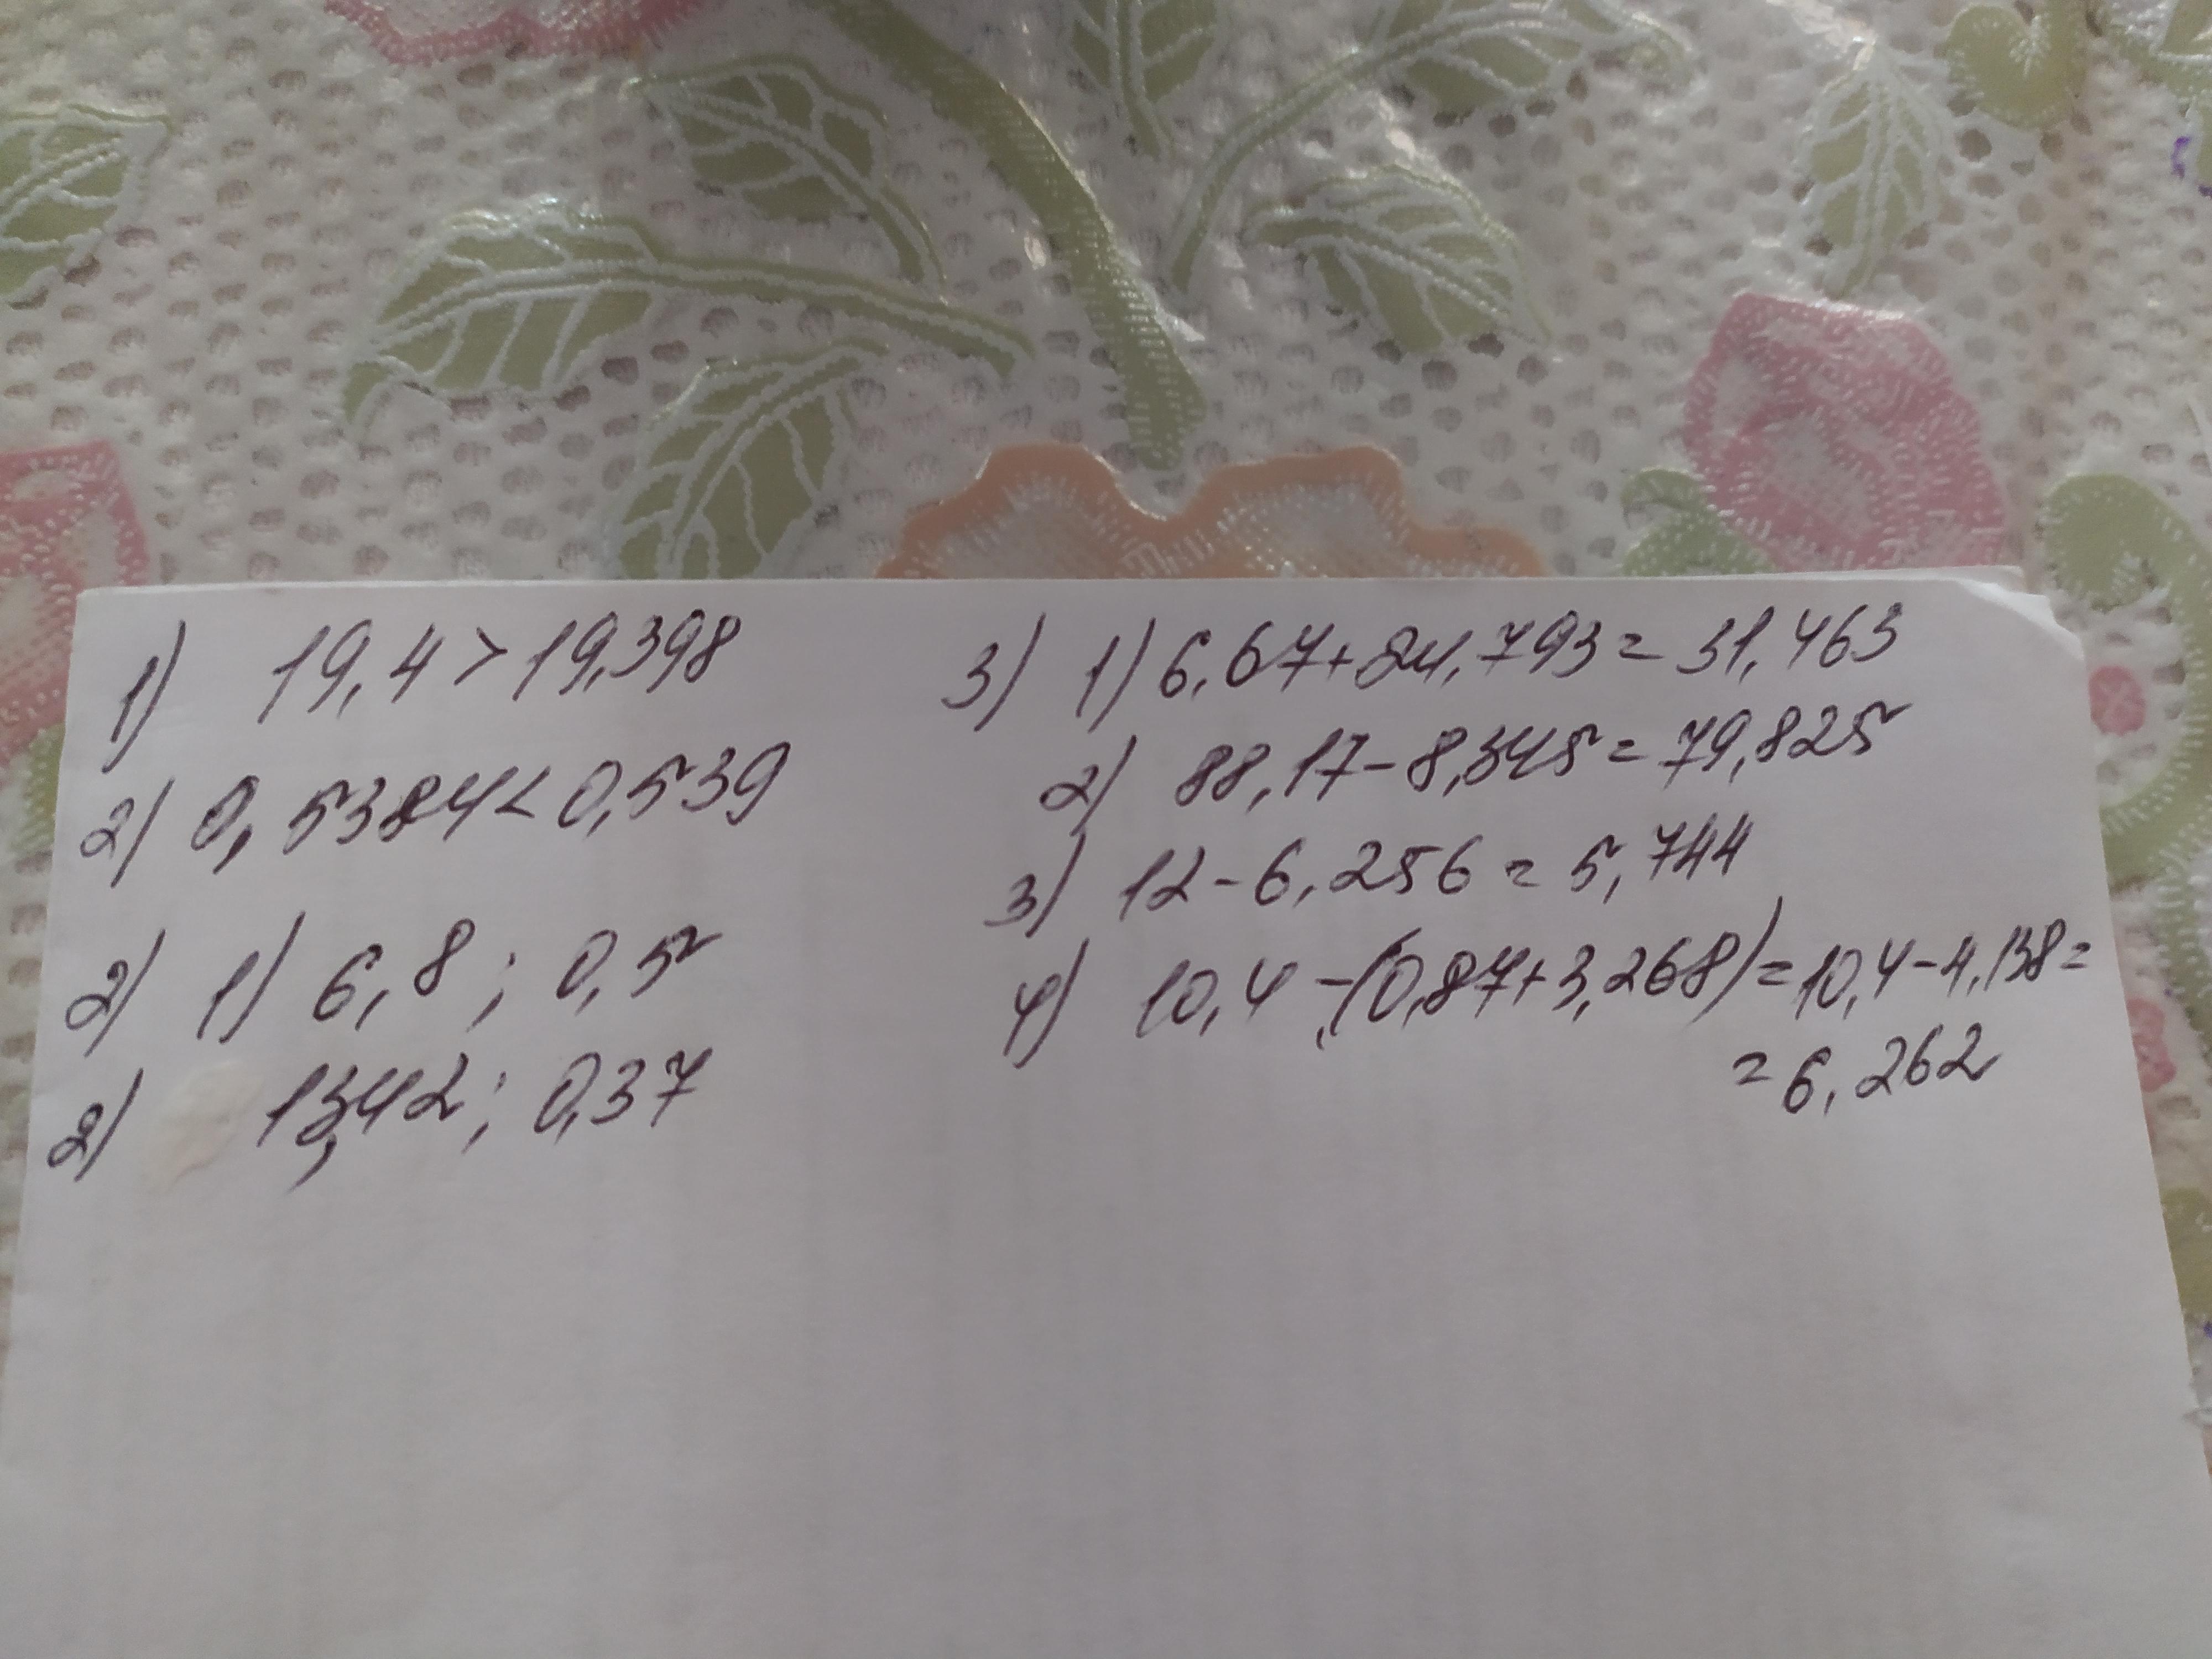 1) 19,4 > 19,398
2) 0,5384 < 0,539
2) 1) 6,8 ; 0,5
2) 13,42 ; 0,37
3) 1) 6,67+24,793 = 31,463
2) 88,17-8,345 = 79,825
3) 12-6,256 = 5,744
4) 10,4 -(0,87+3,268) = 10,4-4,138 =
= 6,262